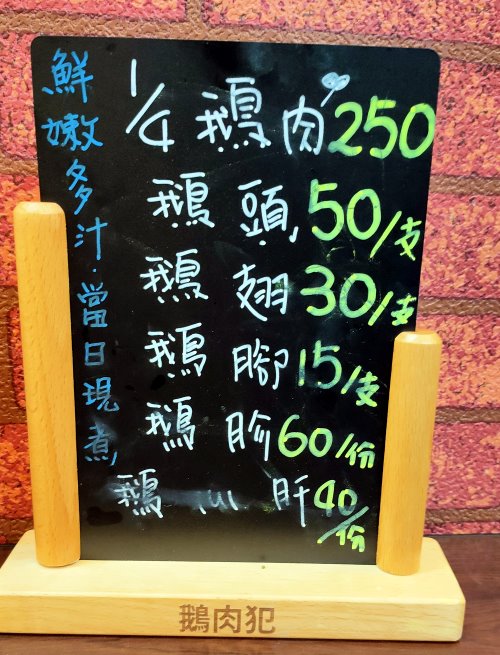 鮮嫩多汁.當日現煮
1/4 鵝肉 250
鵝頭 50/支
鵝翅 30/支
鵝腳 15/支
鵝胗 60/份
鵝心肝 40/份
鵝肉犯